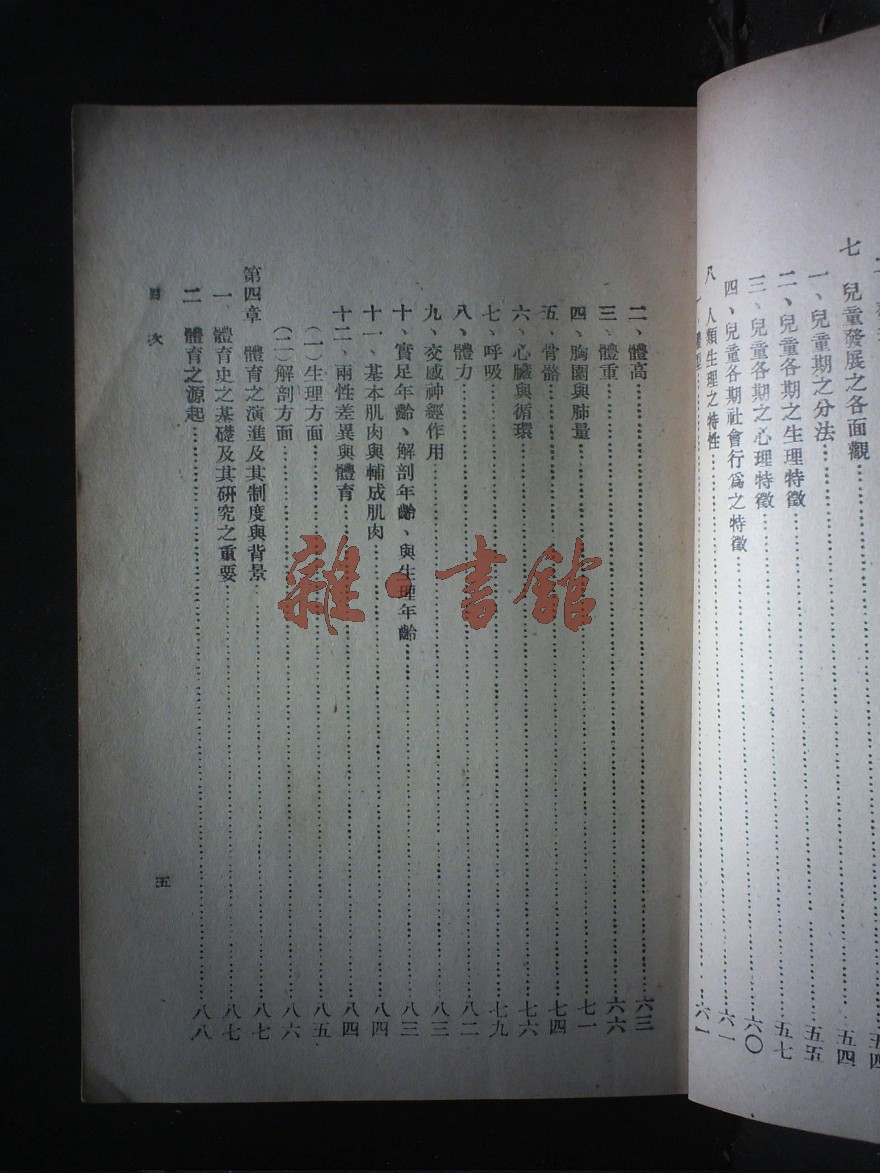 七　兒童發展之各面觀……五四
一、兒童期之分法……五五
二、兒童各期之生理特徵……五七
三、兒童各期之心理特徵……六〇
四、兒童各期社會行爲之特徵……六一
八　人類生理之特性
二、體高……六三
三、體重……六六
四、胸圍與肺量……七一
五、骨骼……七四
六、心臟與循環……七六
七、呼吸……七九
八、體力……八二
九、交感神經作用……八三
十、實足年齡、解剖年齡、與生理年齡……八三
十一、基本肌肉與輔成肌肉……八四
十二、兩性差異與體育……八四
(一)生理方面……八五
(二)解剖方面……八六
第四章　體育之演進及其制度與背景……八七
一　體育史之基礎及其研究之重要……八七
二　體育之源起……八八
目次
五
雜·書館